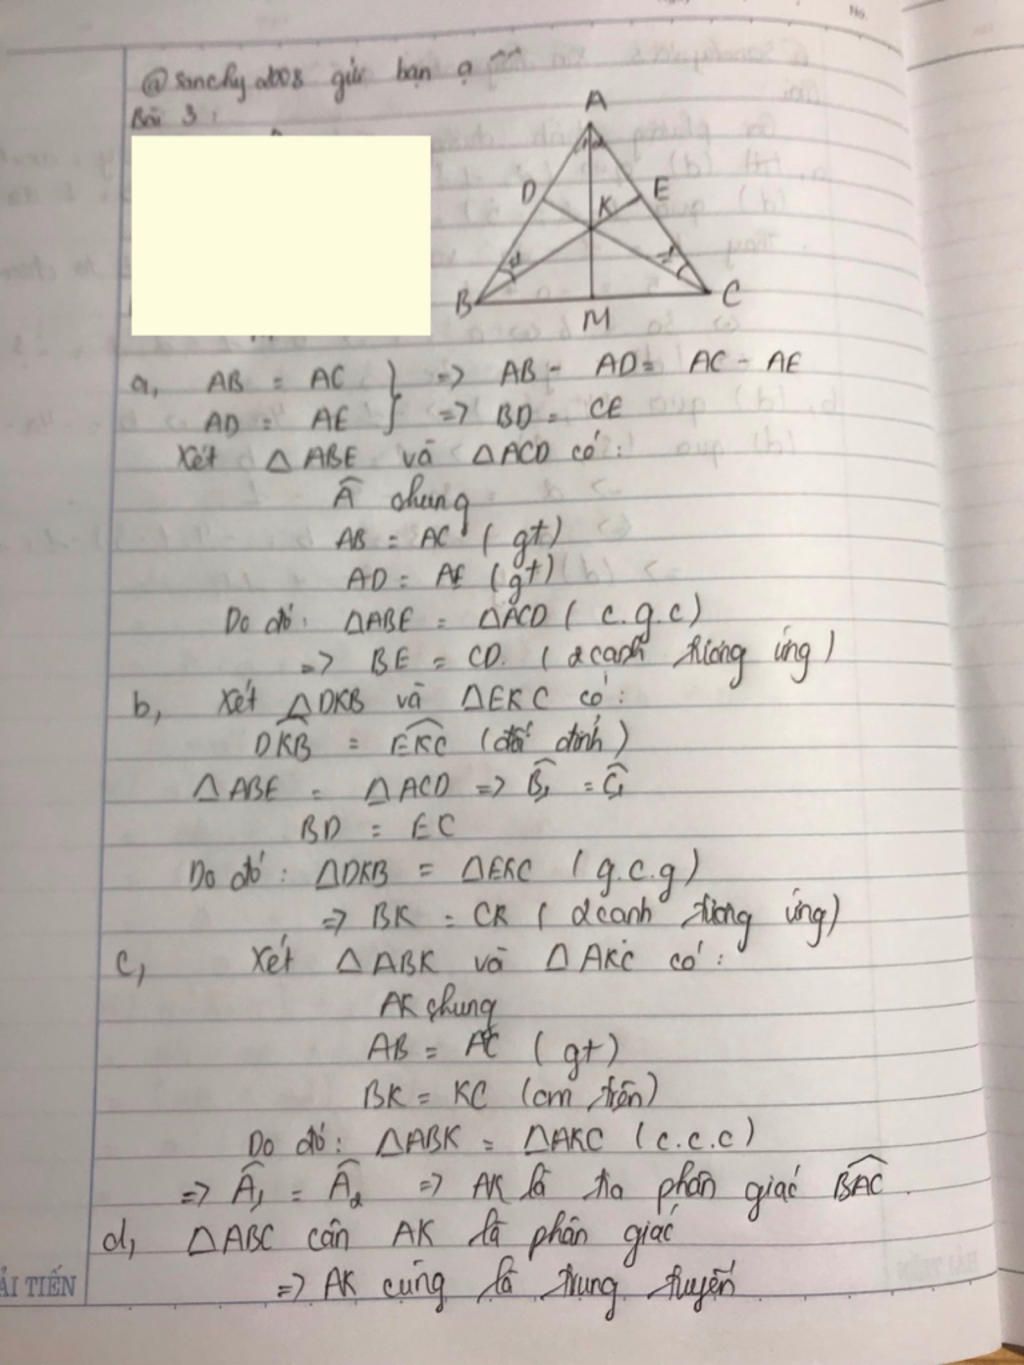 @sanchy2008 gửi bạn ạ ^^
Bài 3:
A
D
E
K
B
C
M
a, AB = AC } => AB - AD = AC - AE
AD = AE } => BD = CE
Xét △ABE và △ACD có:
Â chung
AB = AC (gt)
AD = AE (gt)
Do đó: △ABE = △ACD (c.g.c)
=> BE = CD. (2 cạnh tương ứng)
b, Xét △DKB và △EKC có:
DKB = EKC (đối đỉnh)
△ABE = △ACD => B̂1 = Ĉ1
BD = EC
Do đó: △DKB = △EKC (g.c.g)
=> BK = CK (2 cạnh tương ứng)
c, Xét △ABK và △AKC có:
AK chung
AB = AC (gt)
BK = KC (cm trên)
Do đó: △ABK = △AKC (c.c.c)
=> Â1 = Â2 => AK là tia phân giác BAC.
d, △ABC cân AK là phân giác
=> AK cũng là trung tuyến
ẢI TIẾN